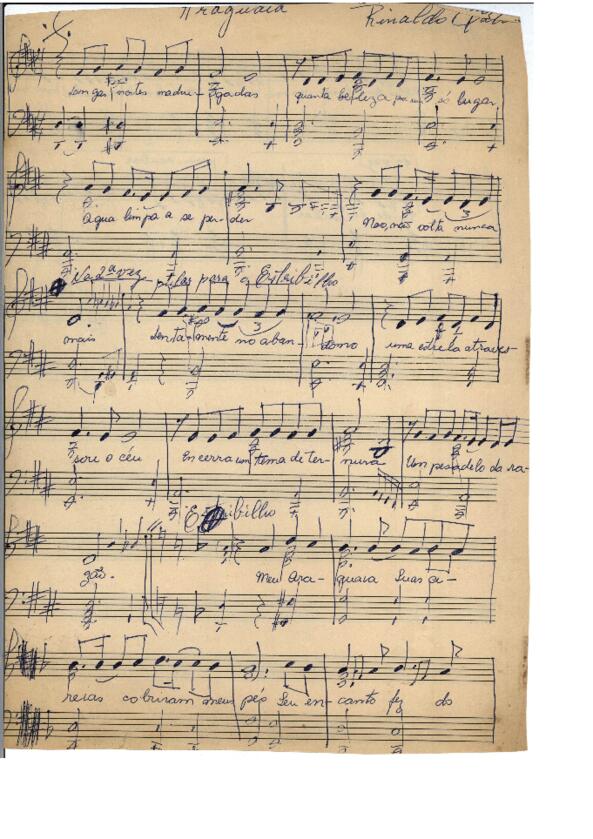 Araguaia Rinaldo
Longas noites madru- gadas quanta beleza por um só lugar
Agua limpa a se per- der Nao, não volta nunca
Na 2ª vez pular para o Estribilho
mais lenta- mente no aban- dono uma estrela atraves-
sou o céu Encerra um tema de ter- nura Um pesadelo da ra-
Estribilho
zão. Meu Ara- guaia Suas a-
reias cobriram meus pés Seu en- canto fez do